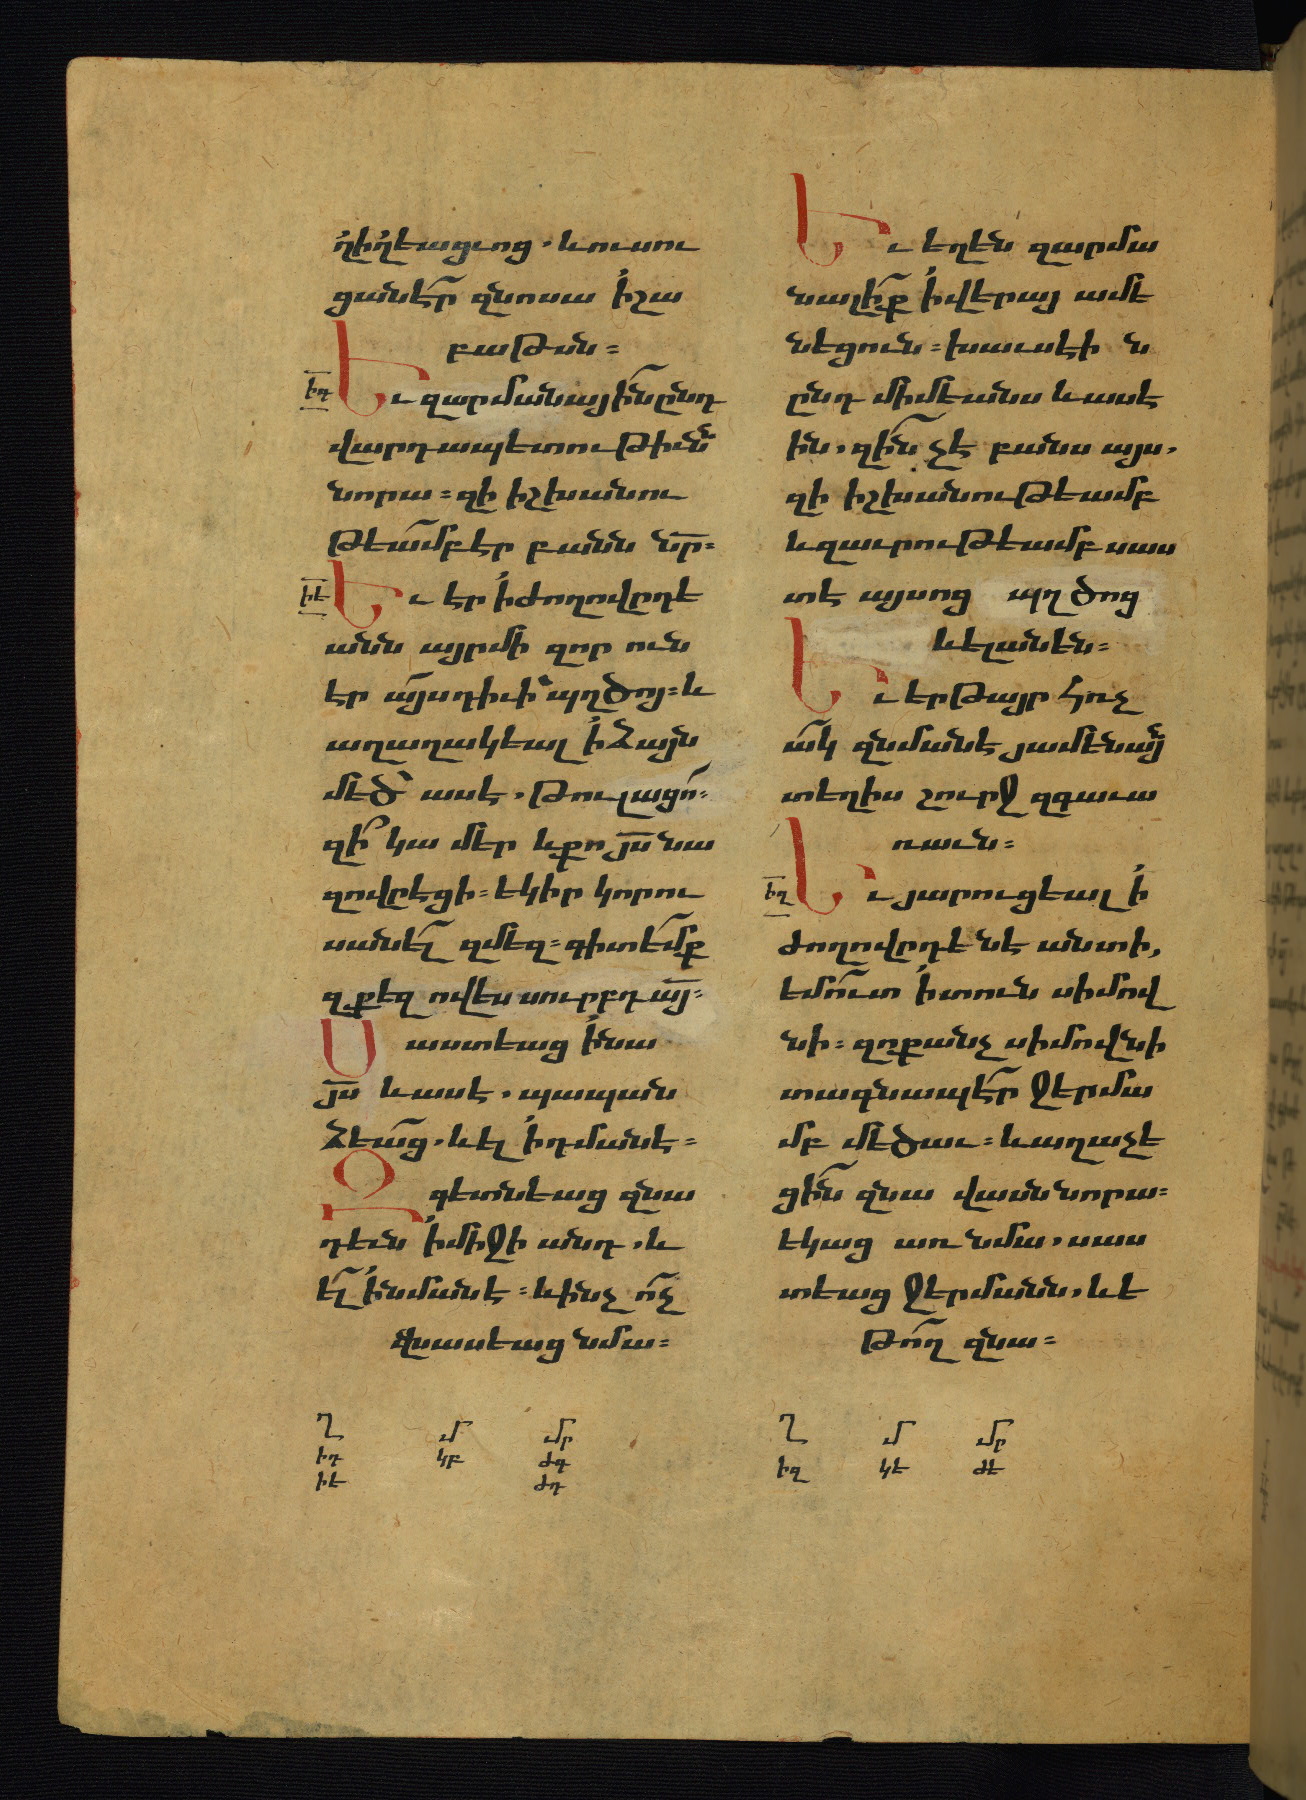 ղիղէացւոց. և ուսու
ցանէր զնոսա ՛ի շա
բաթսն։
իդ Եւ զարմանային ընդ
վարդապետութիւնն
նորա։ զի իշխանու
թեամբ էր բանն նր։
իե Եւ էր ՛ի ժողովրդե
անն այր մի զոր ուն
էր այս դիւի պղծոյ։ և
աղաղակեալ ՛ի ձայն
մեծ ասէ. թոյլ ացո։
զի կա մեր և քո յս նա
զովրեցի։ եկիր կորու
սանել զմեզ։ գիտեմք
զքեզ ով ես սուրբդ այ։
Սաստեաց ՛ի նա
յս և ասէ. պապան
ձեաց. և ել ՛ի դմանէ։
Զգետնեաց զնա
դևն ՛ի միջի անդ. և
ել ՛ի նմանէ։ և ինչ ոչ
վնասեաց նմա։
Ղ մ մր
իդ կբ ժգ
իե ժդ
Եւ եղեն զարմա
նալիք ՛ի վերայ ամե
նեցուն։ խաւսէի ն
ընդ միմեանս և ասէ
ին. զինչ է բանս այս.
զի իշխանութեամբ
և զաւրութեամբ սաս
տէ այսոց պղծոց
և ելանեն։
Եւ երթայր հռչ
ակ զնմանէ յամենայն
տեղիս շուրջ զգաւա
ռաւն։
իզ Եւ յարուցեալ ՛ի
ժողովրդենէ անտի,
եմուտ ՛ի տուն սիմով
նի։ զոքանչ սիմովնի
տագնապէր ջերմա
մբ մեծաւ։ և աղաչե
ցին զնա վասն նորա։
եկաց առ նմա. սաս
տեաց ջերմանն. և ե
թող զնա։
Ղ մ մր
իզ կե ժե